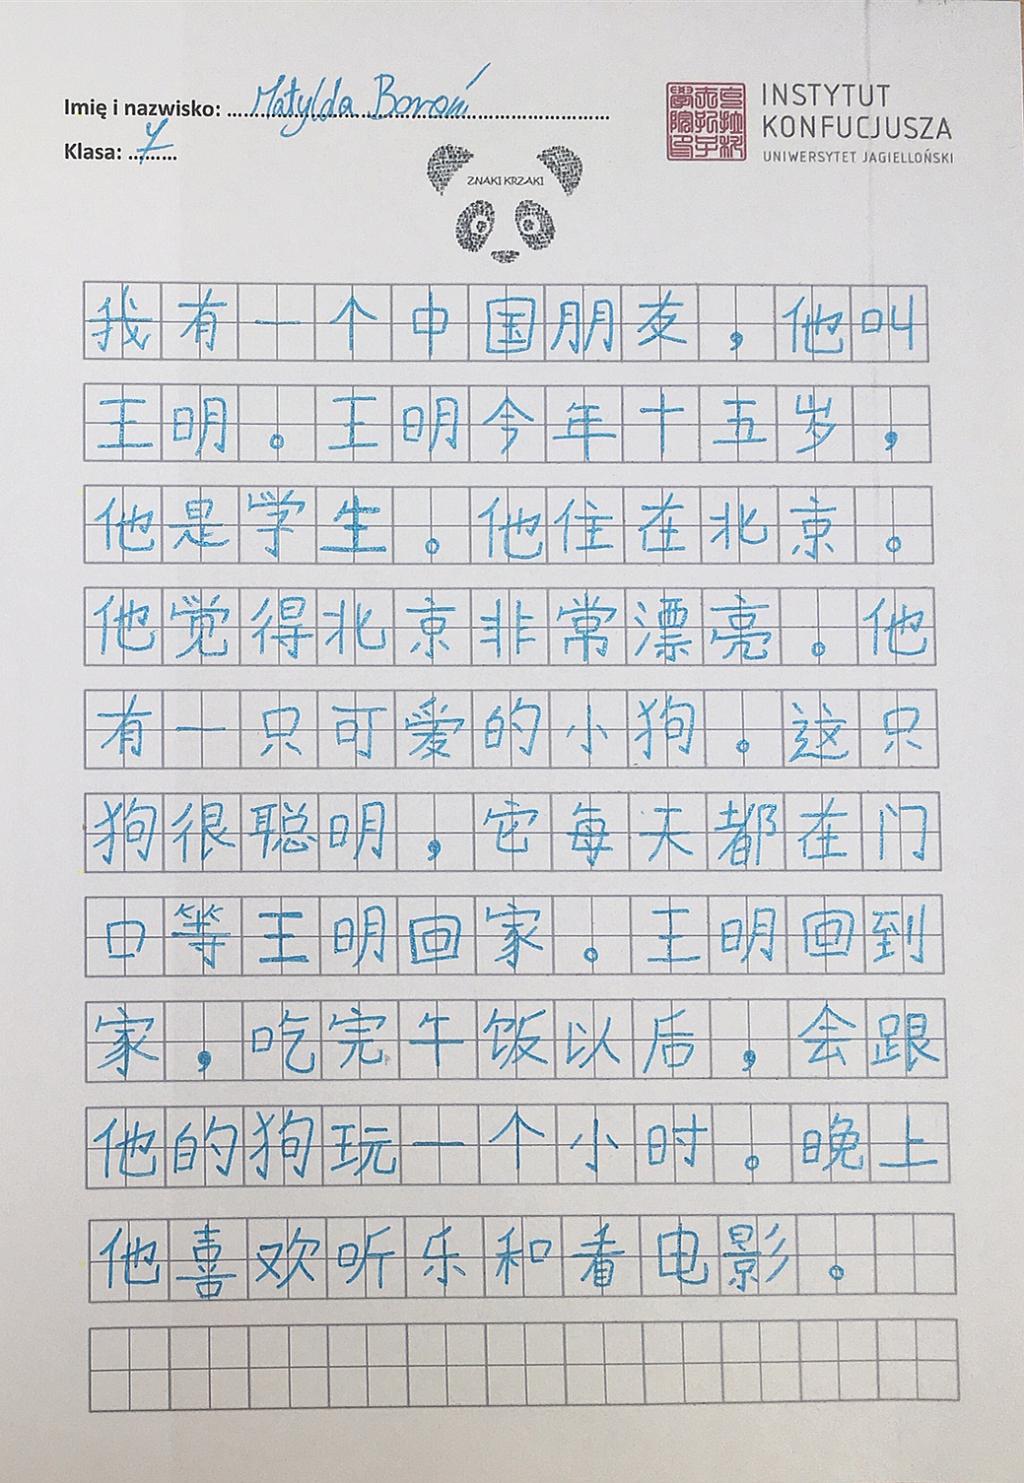 Imię i nazwisko: Matylda Boroń
Klasa: 7
INSTYTUT
KONFUCJUSZA
UNIWERSYTET JAGIELLOŃSKI
ZNAKI KRZAKI
我有一个中国朋友，他叫
王明。王明今年十五岁，
他是学生。他住在北京。
他觉得北京非常漂亮。他
有一只可爱的小狗。这只
狗很聪明，它每天都在门
口等王明回家。王明回到
家，吃完午饭以后，会跟
他的狗玩一个小时。晚上
他喜欢听乐和看电影。